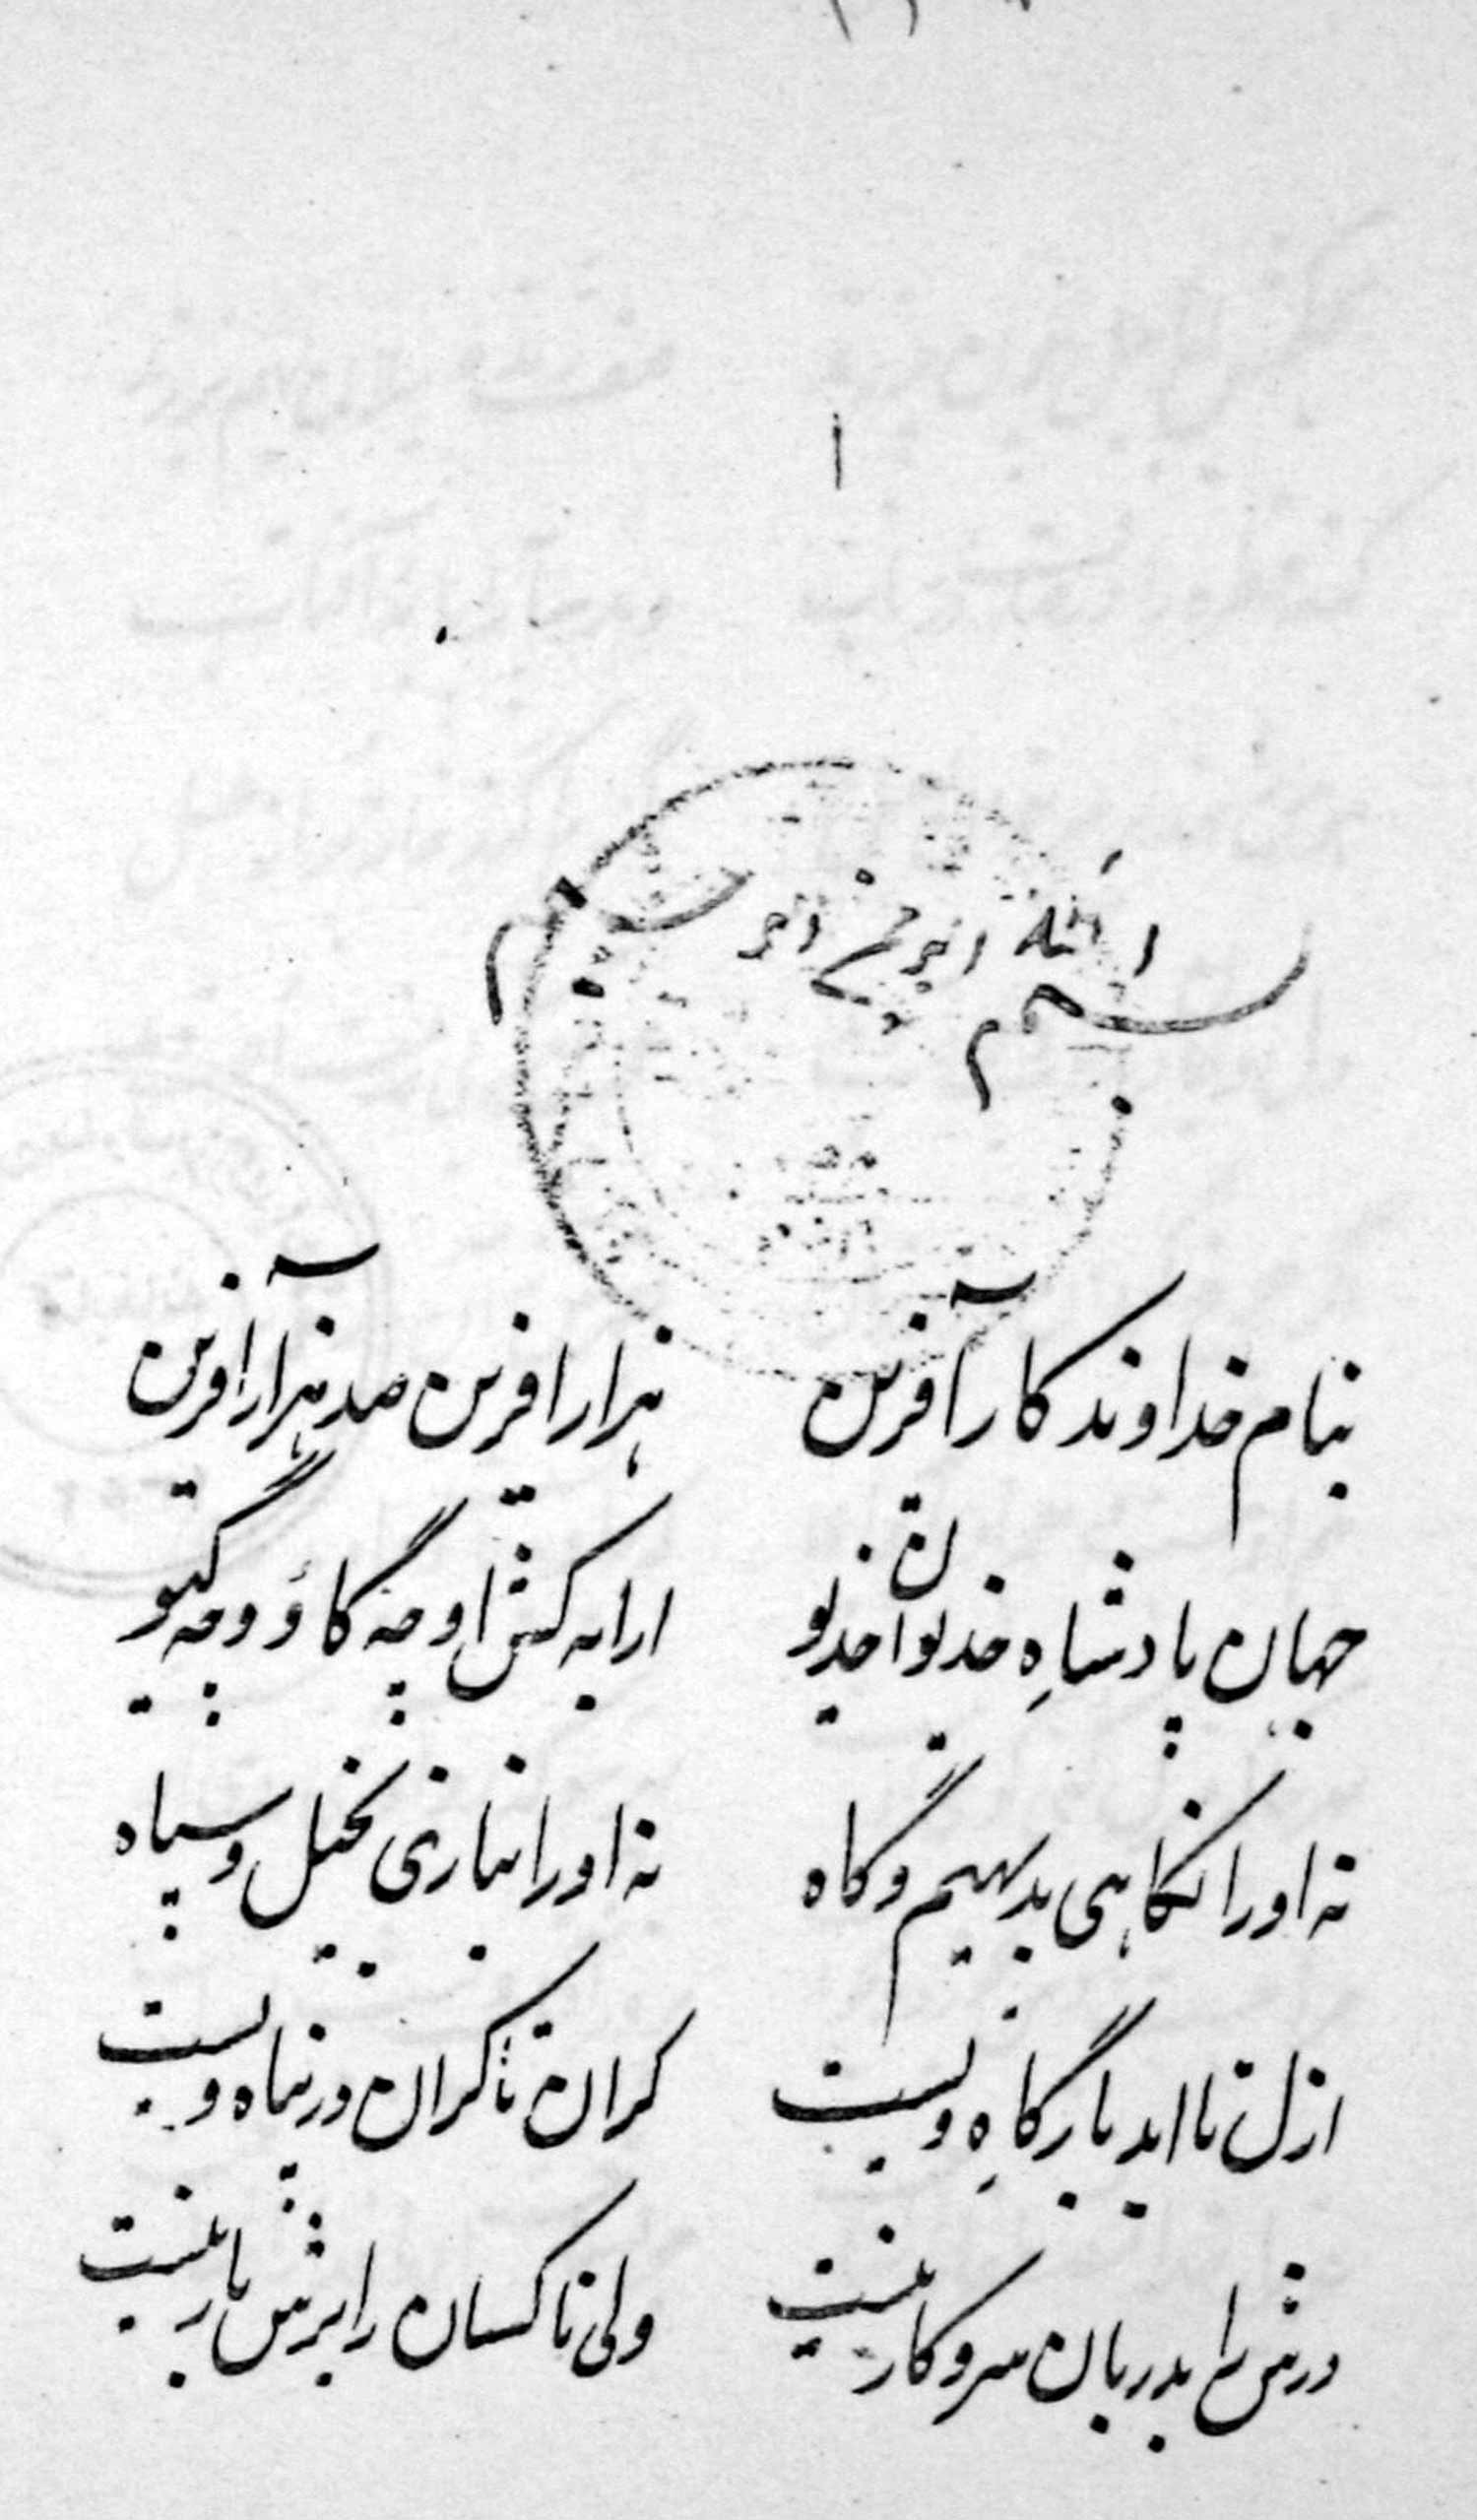 ۱
بسم الله الرحمن الرحیم
بنام خداوند کار آفرین هزار آفرین صد هزار آفرین
جهان پادشاهِ خدیوان خدیو ارابه کش او چه گاؤ و چه گیو
نه او را نگاهی بدیهیم و گاه نه او را نیازی بخیل و سپاه
ازل تا ابد بارگاهِ ویست کران تا کران در پناه ویست
درش را بدربان سر و کار نیست ولی ناکسان را برش بار نیست